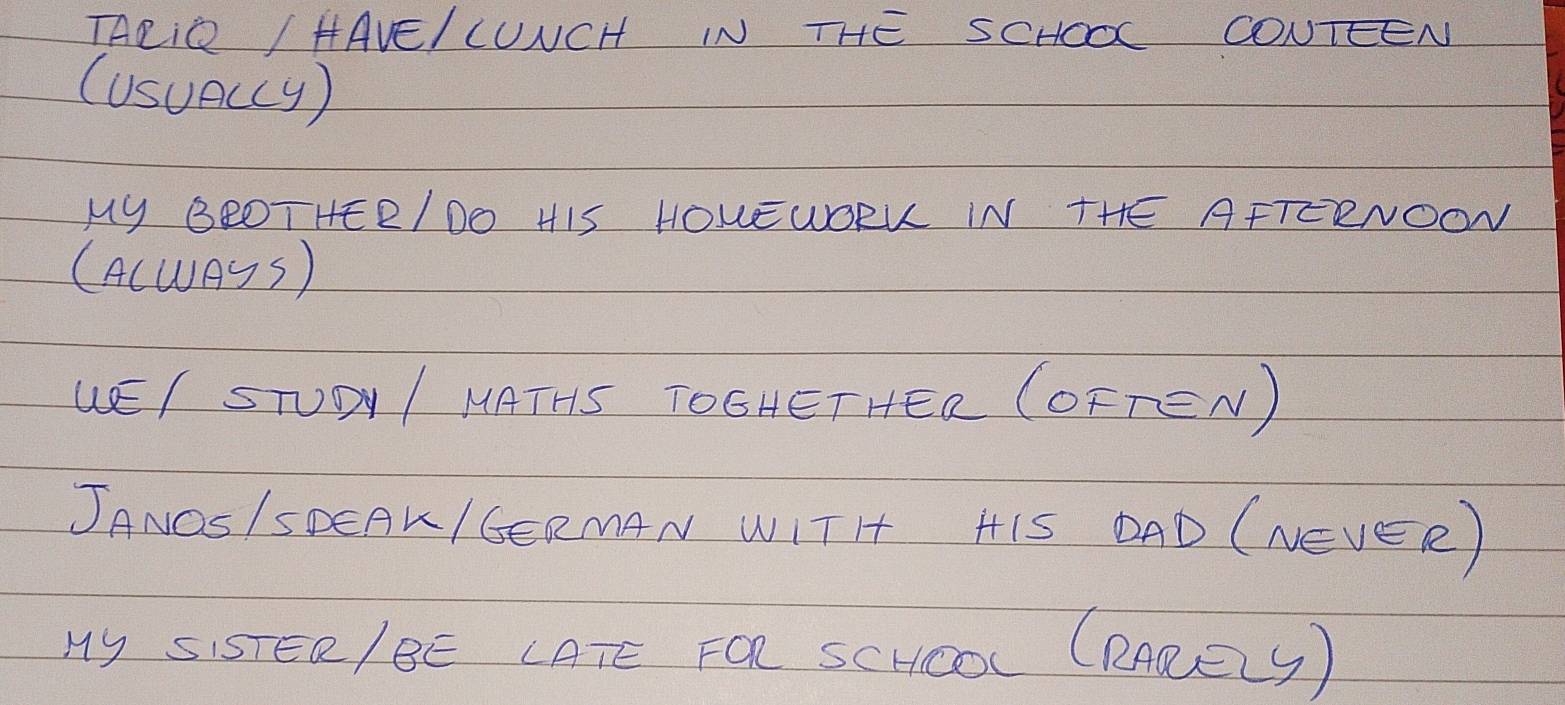 TARIQ / HAVE / LUNCH IN THE SCHOOL CONTEEN
(USUALLY)
MY BROTHER / DO HIS HOMEWORK IN THE AFTERNOON
(ALWAYS)
WE / STUDY / MATHS TOGHETHER (OFTEN)
JANOS / SPEAK / GERMAN WITH HIS DAD (NEVER)
MY SISTER / BE LATE FOR SCHOOL (RARELY)